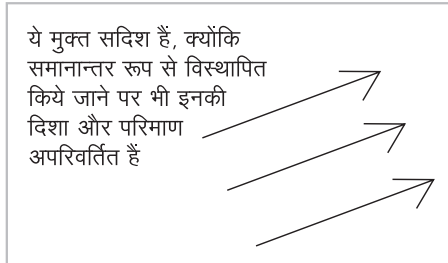 ये मुक्त सदिश हैं, क्योंकि
समानान्तर रूप से विस्थापित
किये जाने पर भी इनकी
दिशा और परिमाण
अपरिवर्तित हैं